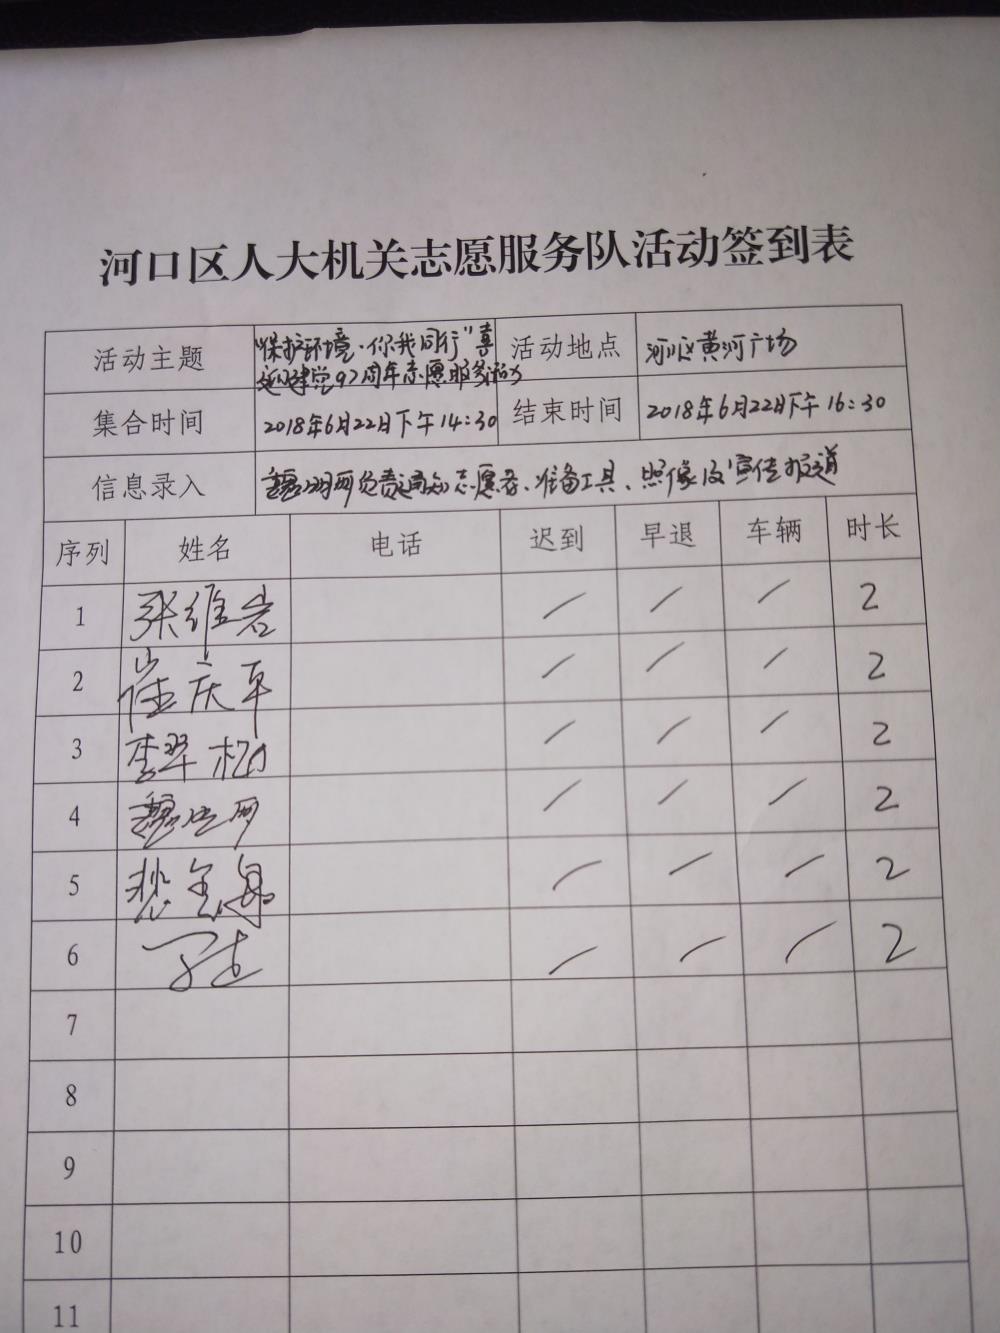 河口区人大机关志愿服务队活动签到表
活动主题 "保护环境·你我同行"喜迎建党97周年志愿服务活动 活动地点 河口区黄河广场
集合时间 2018年6月22日下午14:30 结束时间 2018年6月22日下午16:30
信息录入 负责通知志愿者、准备工具、照像及宣传报道
序列 姓名 电话 迟到 早退 车辆 时长
1 张维岩 / / / 2
2 崔庆平 / / / 2
3 李翠松 / / / 2
4 / / / 2
5 / / / 2
6 / / / 2
7
8
9
10
11